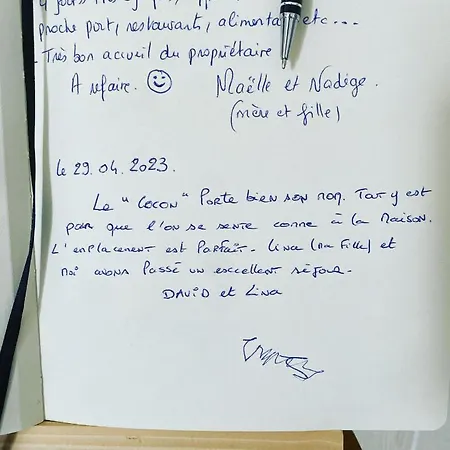 4 jours
proche port, restaurants, alimentation etc...
- Très bon accueil du propriétaire
A refaire. Maëlle et Nadège.
(mère et fille)
le 29.04.2023.
Le "COCON" Porte bien son nom. Tout y est
pour que l'on se sente comme à la maison.
L'emplacement est Parfait. Lina (ma fille) et
moi avons Passé un excellent séjour.
DAVID et Lina